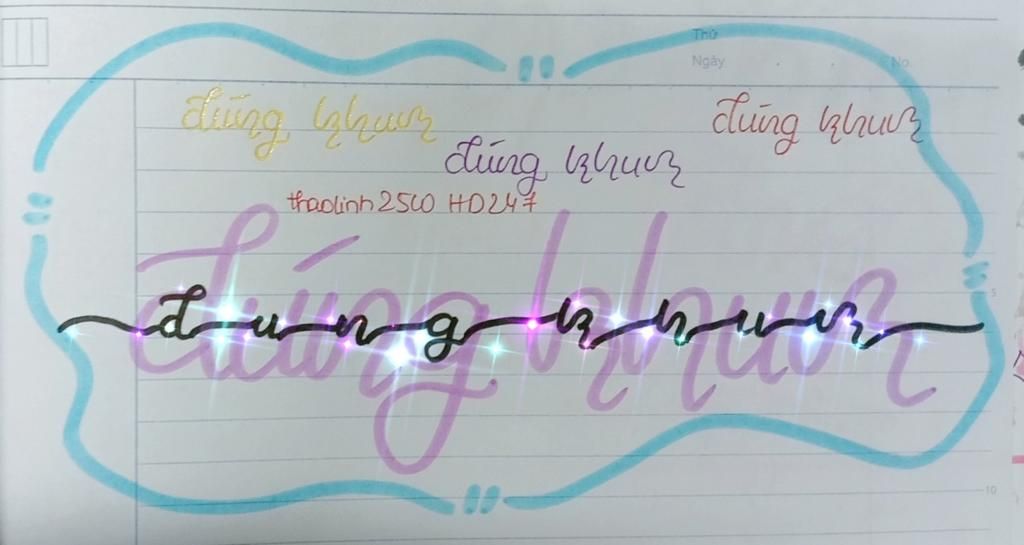 Thứ
Ngày . . No.
đúng khum
đúng khum
đúng khum
thaolinh2510 HD247
đúng khum
dung khum
5
10